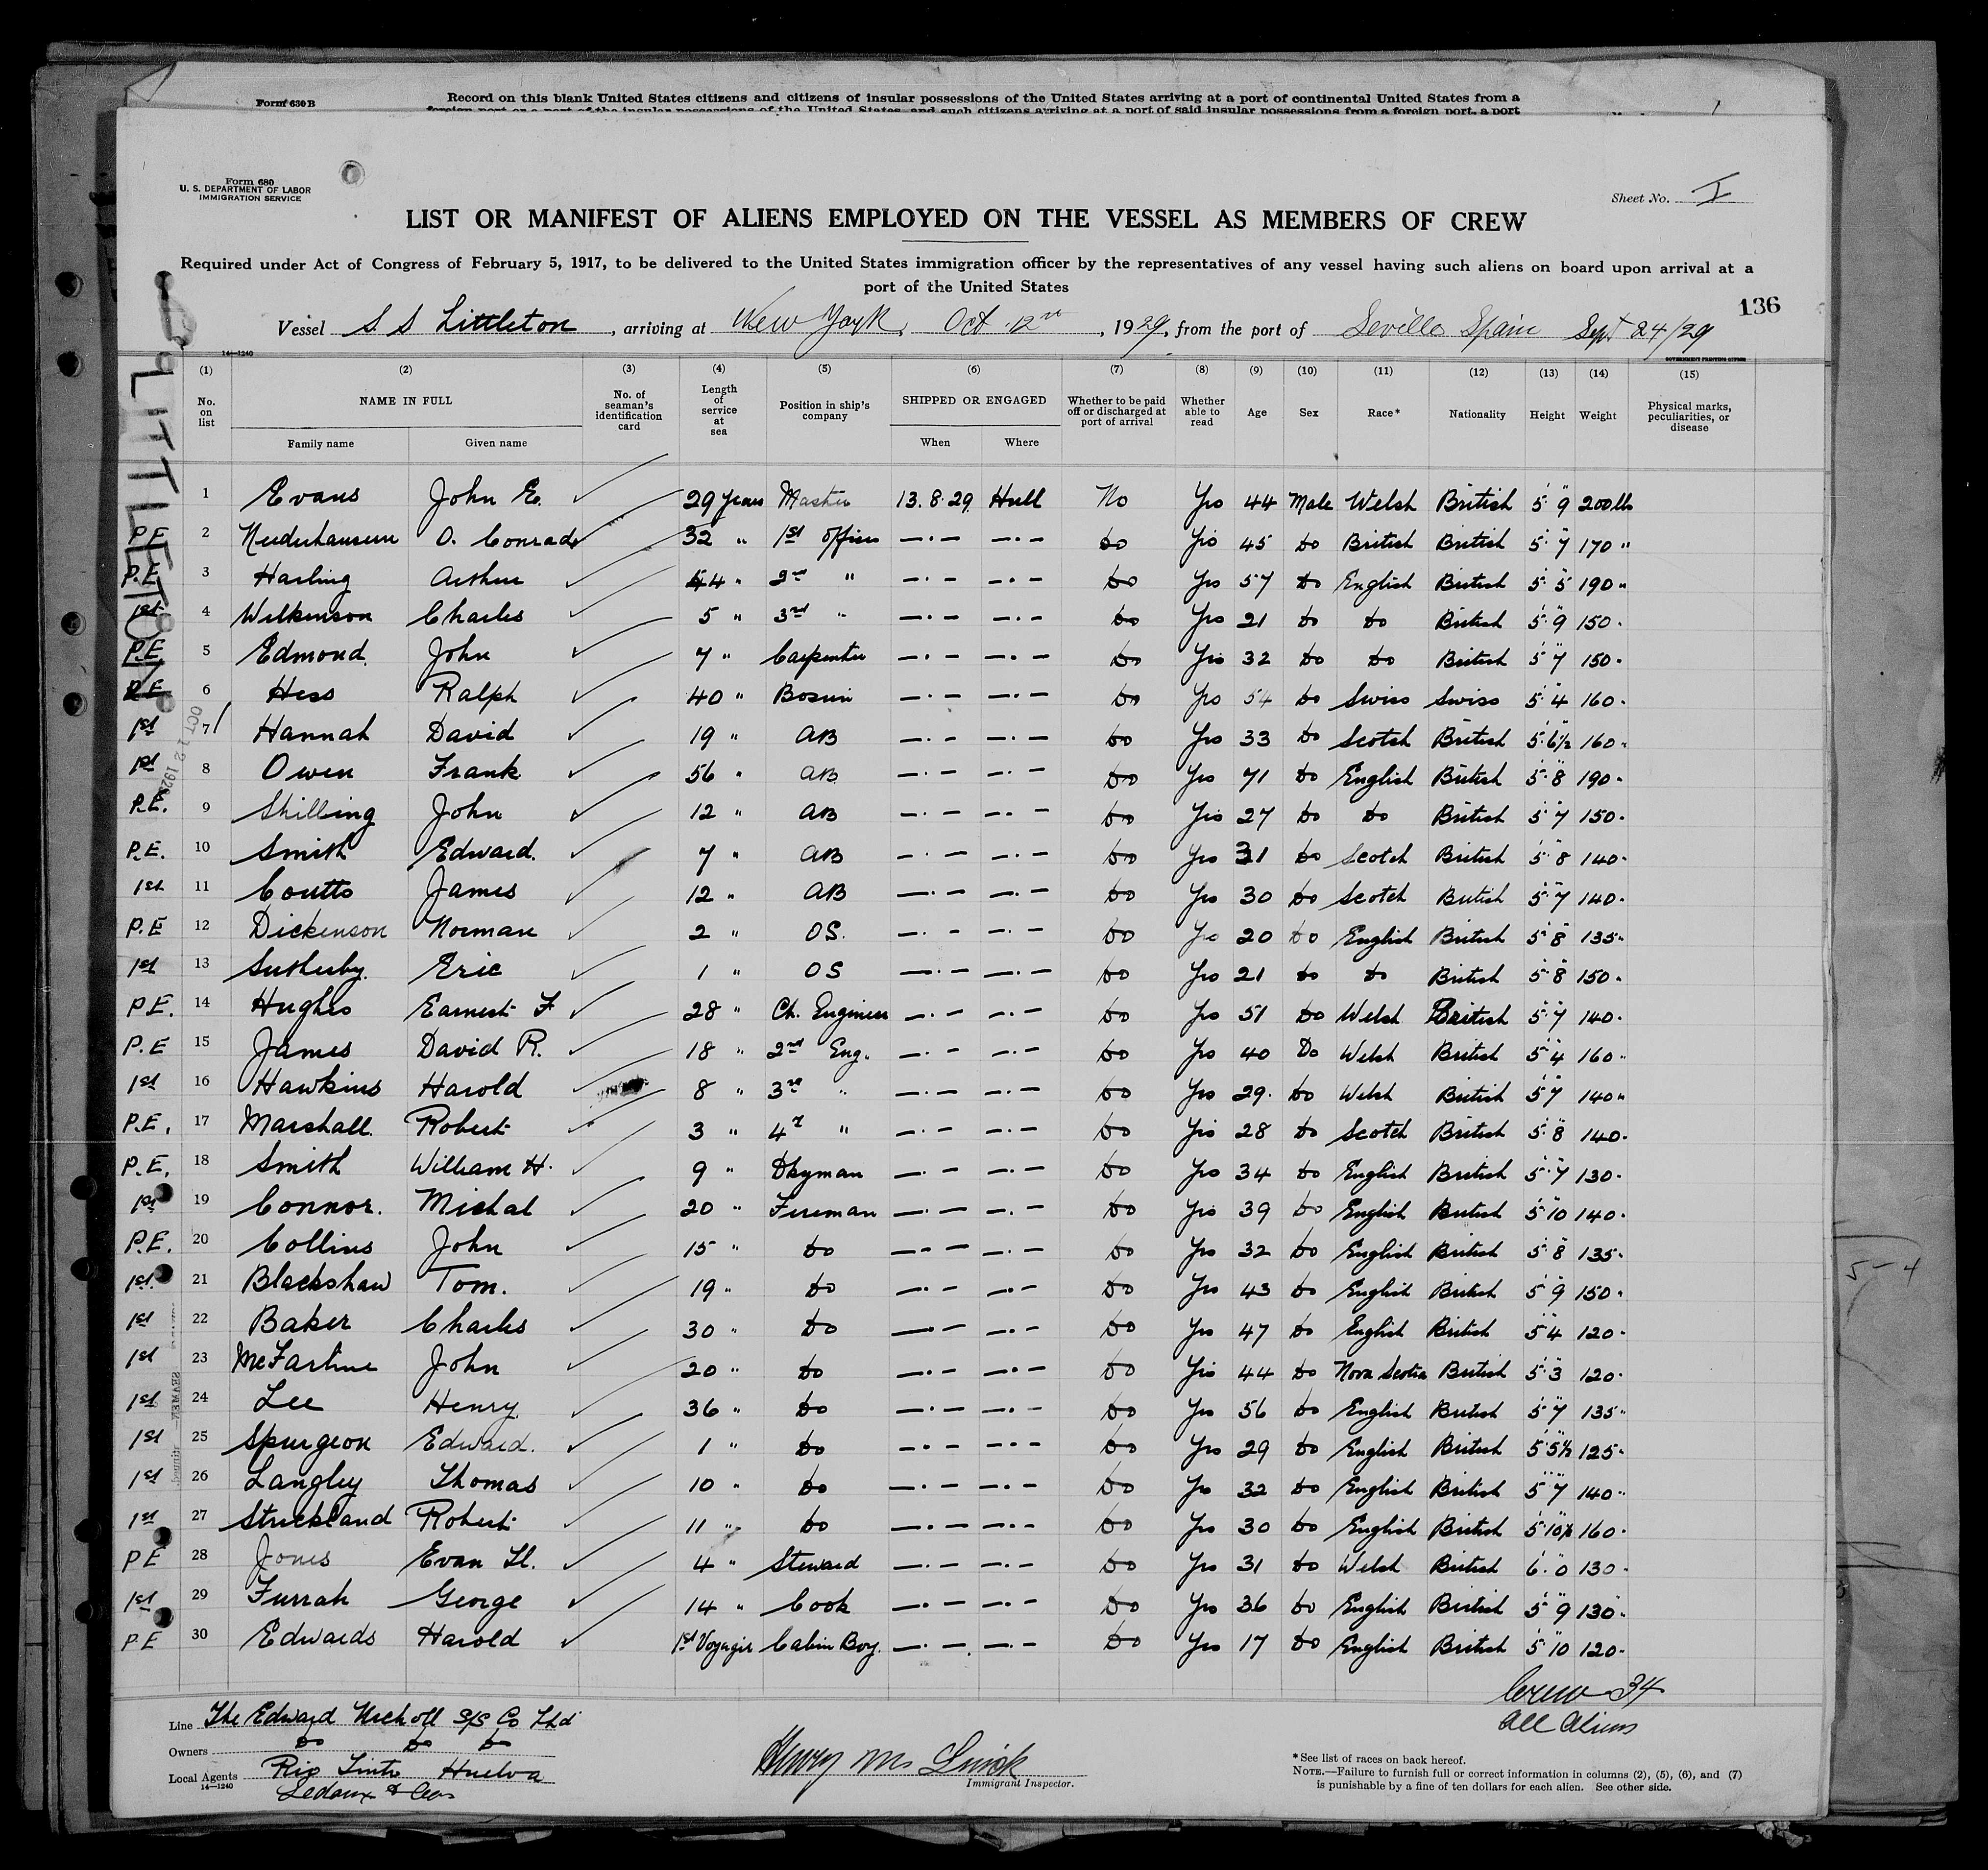 Form 630 B
Record on this blank United States citizens and citizens of insular possessions of the United States arriving at a port of continental United States from a
foreign port or a port of the insular possessions of the United States, and such citizens arriving at a port of said insular possessions from a foreign port, a port
Form 680
U. S. DEPARTMENT OF LABOR
IMMIGRATION SERVICE
Sheet No. I
LIST OR MANIFEST OF ALIENS EMPLOYED ON THE VESSEL AS MEMBERS OF CREW
Required under Act of Congress of February 5, 1917, to be delivered to the United States immigration officer by the representatives of any vessel having such aliens on board upon arrival at a
port of the United States
136
Vessel S S Littleton, arriving at New York, Oct 12th, 1929, from the port of Seville Spain Sept 24/29
14—1240
GOVERNMENT PRINTING OFFICE
(1) (2) (3) (4) (5) (6) (7) (8) (9) (10) (11) (12) (13) (14) (15)
No. on list NAME IN FULL No. of seaman's identification card Length of service at sea Position in ship's company SHIPPED OR ENGAGED Whether to be paid off or discharged at port of arrival Whether able to read Age Sex Race* Nationality Height Weight Physical marks, peculiarities, or disease
Family name Given name When Where
1 Evans John E. 29 years Master 13.8.29 Hull No Yes 44 Male Welsh British 5' 9" 200 lb
P.E. 2 Neiderhausern O. Conrad 32 " 1st Officer —.— —.— do Yes 45 do British British 5' 7" 170 "
P.E. 3 Harling Arthur 44 " 2nd " —.— —.— do Yes 57 do English British 5' 5" 190 "
1st 4 Wilkenson Charles 5 " 3rd " —.— —.— do Yes 21 do do British 5' 9" 150 "
P.E. 5 Edmond John 7 " Carpenter —.— —.— do Yes 32 do do British 5' 7" 150 "
P.E. 6 Hess Ralph 40 " Bosun —.— —.— do Yes 54 do Swiss Swiss 5' 4" 160 "
1st 7 Hannah David 19 " AB —.— —.— do Yes 33 do Scotch British 5' 6½ 160 "
1st 8 Owen Frank 56 " AB —.— —.— do Yes 71 do English British 5' 8" 190 "
P.E. 9 Skilling John 12 " AB —.— —.— do Yes 27 do do British 5' 7" 150 "
P.E. 10 Smith Edward 7 " AB —.— —.— do Yes 31 do Scotch British 5' 8" 140 "
1st 11 Coutts James 12 " AB —.— —.— do Yes 30 do Scotch British 5' 7" 140 "
P.E 12 Dickenson Norman 2 " OS. —.— —.— do Yes 20 do English British 5' 8" 135 "
1st 13 Sutherby Eric 1 " OS —.— —.— do Yes 21 do do British 5' 8" 150 "
P.E. 14 Hughes Earnest F 28 " Ch. Engineer —.— —.— do Yes 51 do Welsh British 5' 7" 140 "
P.E 15 James David R. 18 " 2nd Eng. —.— —.— do Yes 40 Do Welsh British 5' 4" 160 "
1st 16 Hawkins Harold 8 " 3rd " —.— —.— do Yes 29 do Welsh British 5' 7" 140 "
P.E. 17 Marshall Robert 3 " 4th " —.— —.— do Yes 28 do Scotch British 5' 8" 140 "
P.E. 18 Smith William H. 9 " Dkyman —.— —.— do Yes 34 do English British 5' 7" 130 "
1st 19 Connor. Michal 20 " Fireman —.— —.— do Yes 39 do English British 5' 10 140 "
P.E. 20 Collins John 15 " do —.— —.— do Yes 32 do English British 5' 8" 135 "
1st 21 Blackshaw Tom. 19 " do —.— —.— do Yes 43 do English British 5' 9" 150 "
1st 22 Baker Charles 30 " do —.— —.— do Yes 47 do English British 5' 4" 120 "
1st 23 McFarline John 20 " do —.— —.— do Yes 44 do Nova Scotia British 5' 3" 120 "
1st 24 Lee Henry 36 " do —.— —.— do Yes 56 do English British 5' 7" 135 "
1st 25 Spurgeon Edward. 1 " do —.— —.— do Yes 29 do English British 5' 5½ 125 "
1st 26 Langley Thomas 10 " do —.— —.— do Yes 32 do English British 5' 7" 140 "
1st 27 Strickland Robert 11 " do —.— —.— do Yes 30 do English British 5' 10½ 160 "
PE 28 Jones Evan Ll. 4 " Steward —.— —.— do Yes 31 do Welsh British 6' 0" 130 "
1st 29 Furrah George 14 " Cook —.— —.— do Yes 36 do English British 5' 9" 130 "
PE 30 Edwards Harold 1st Voyage Cabin Boy. —.— —.— do Yes 17 do English British 5' 10 120 "
Crew 34
all aliens
LITTLETON
OCT 12 1929
SEAMEN
5-4
Line The Edward Nicholl S/S Co Ltd
Owners do do do
Local Agents Rio Tinto Huelva
14—1240
Immigrant Inspector.
*See list of races on back hereof.
NOTE.—Failure to furnish full or correct information in columns (2), (5), (6), and (7)
is punishable by a fine of ten dollars for each alien. See other side.